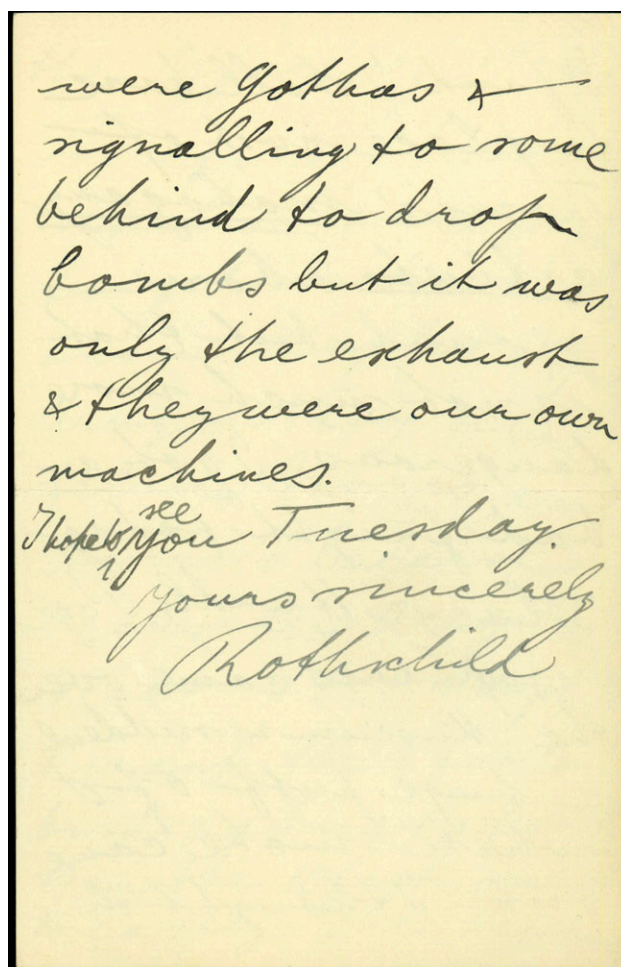 were Gothas &
signalling to some
behind to drop
bombs but it was
only the exhaust
& they were our own
machines.
I hope to see you Tuesday.
Yours sincerely
Rothschild